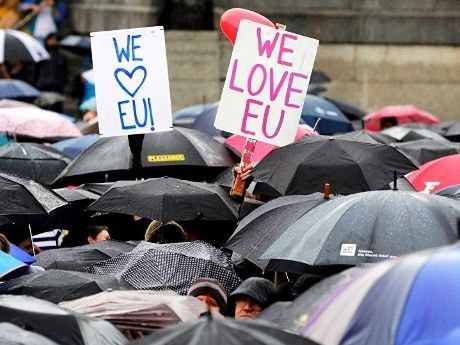 WE
♡
EU!
WE
LOVE
EU
PLEASEMO